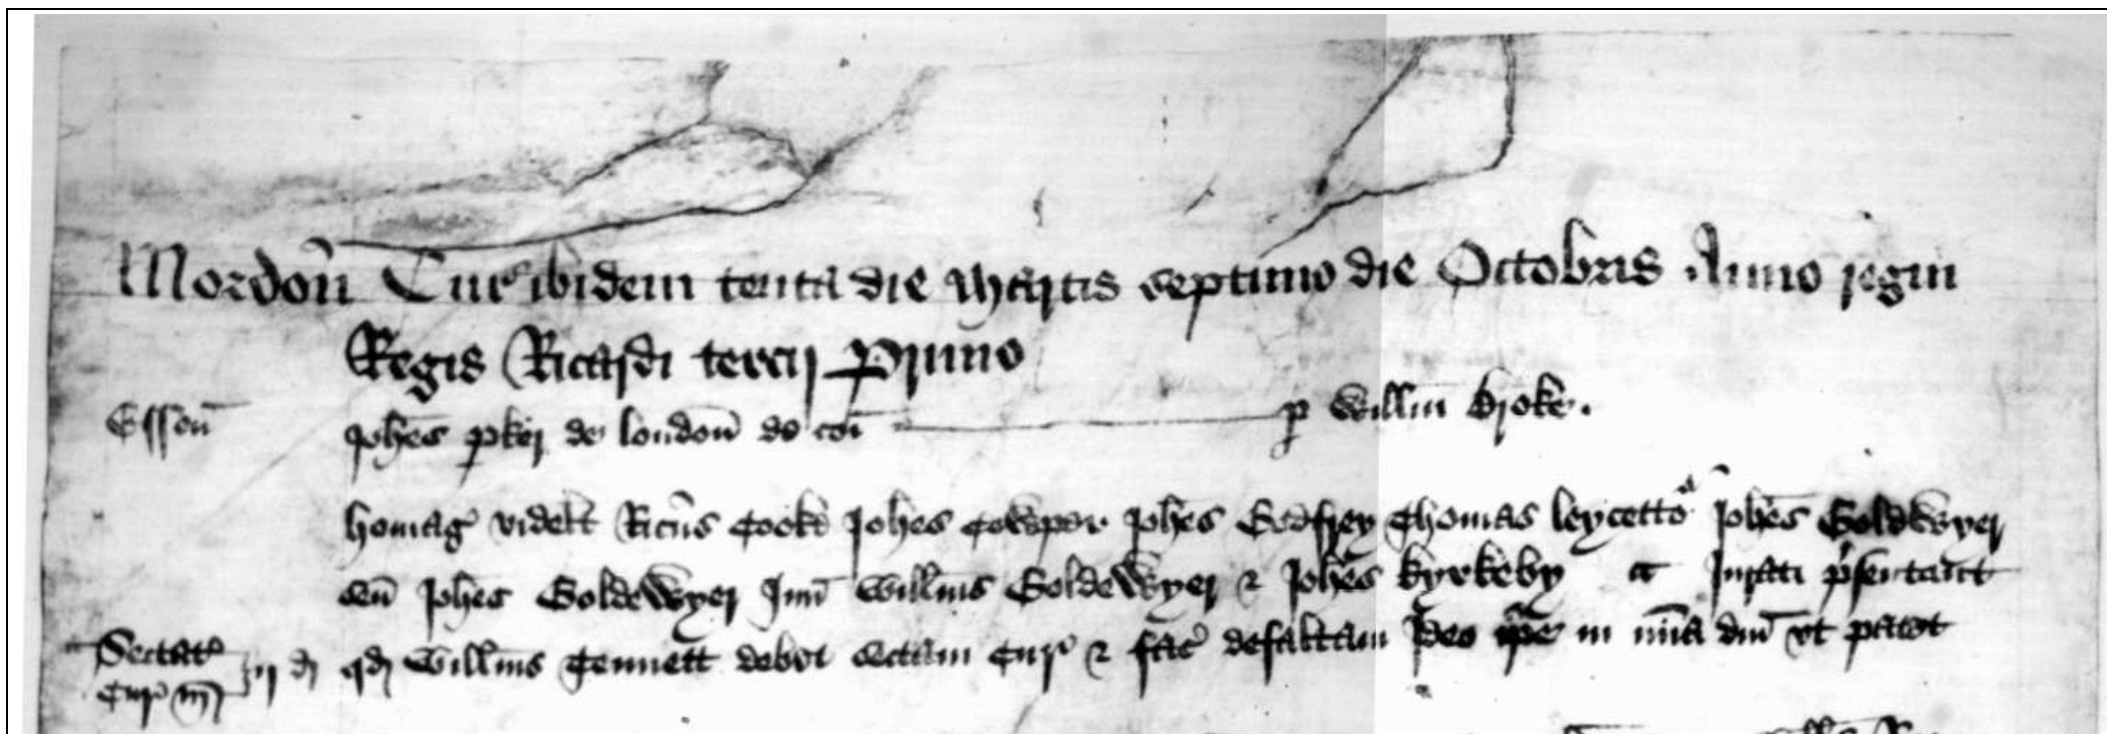 Mordoñ Cur' ibidem tenta die Martis septimo die Octobris Anno regni
Regis Ricardi tercij Primo
Essoñ Johes pker de londoñ de coi p Willm Broke.
homag' videlt Ricus Cooke Johes Cowper Johes Godfrey Thomas leycett Johes Goldewyer
señ Johes Goldewyer Juñ Willms Goldewyer & Johes kyrkeby Jurati psentant
Sectat' Cur' m ij d qd Willms Gennett debet sectam Cur' & fac' defaltam Ideo ipe in mia dni vt patet